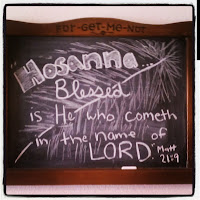 For-Get-Me-Not
Hosanna...
Blessed
is He who cometh
in the name of
LORD. Matt
21:9